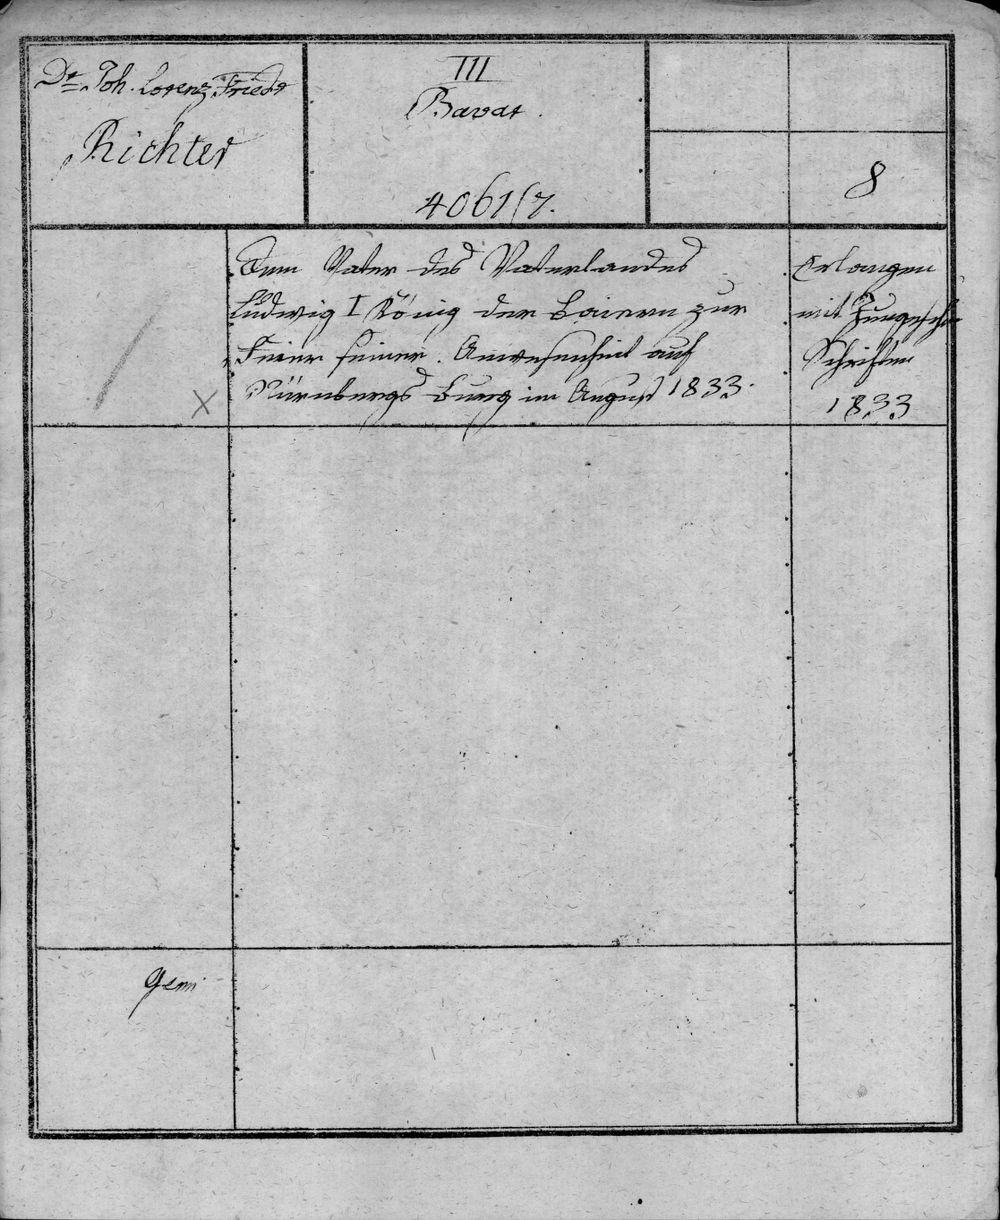 Dr. Joh. Lorenz Friedr
Richter
III
Bavar.
4061/7.
8
Dem Vater des Vaterlandes
Ludwig I König der Baiern zur
Feier seiner Anwesenheit auf
Nürnbergs Burg im August 1833.
Erlangen
mit
Schriften
1833